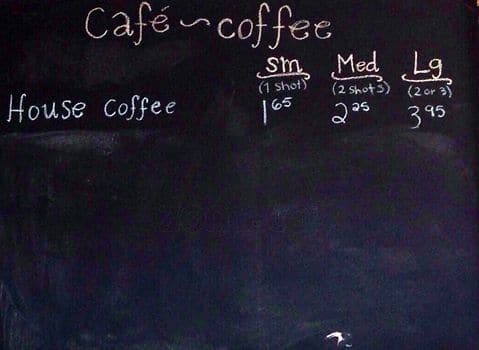 Café ~ coffee
Sm Med Lg
(1 shot) (2 shots) (2 or 3)
House Coffee 1 65 2 25 3 95